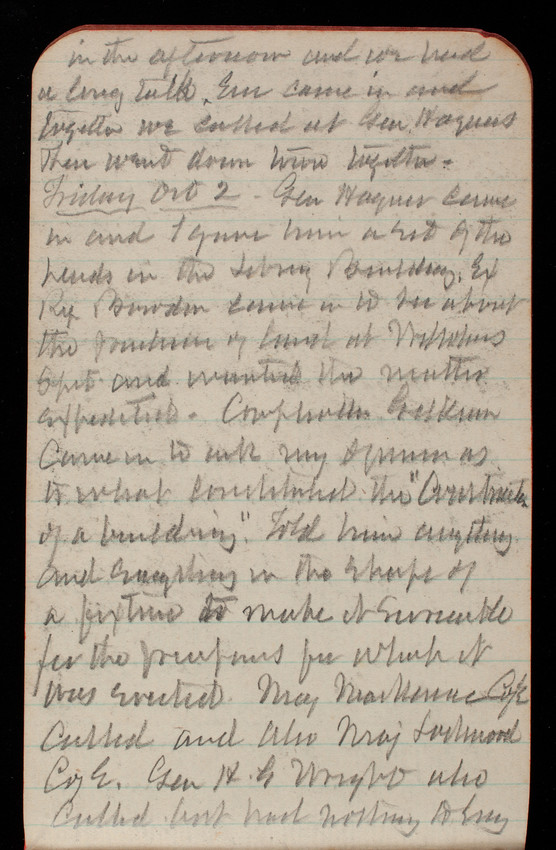 in the afternoon and we had
a long talk. Em came in and
together we called at Gen. Hagners
then went down town together.
Friday Oct 2 - Gen Hagner came
in and I gave him a set of the
heads in the Library Building. Ex
Rep Bowden came in to see about
the purchase of land at Willoughbys
Spit and wanted the matter
expedited. Comptroller
came in to ask my opinion as
to what constituted the "Construction
of a building". Told him anything
and everything in the shape of
a fixture to make it serviceable
for the purposes for which it
was erected. Maj Mackenzie Cof E
called and also Maj Lockwood
C of E. Gen H. G Wright also
called but had nothing to say